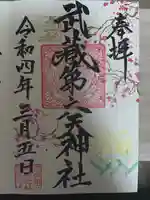 奉拝
武蔵第六天神社
令和四年三月五日